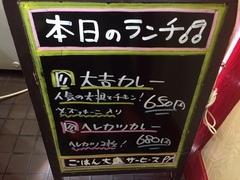 本日のランチ
大吉カレー
人気の大担とチキン!
650円
ヘレカツカレー
ヘレカツ
680円
ごはん大盛サービス